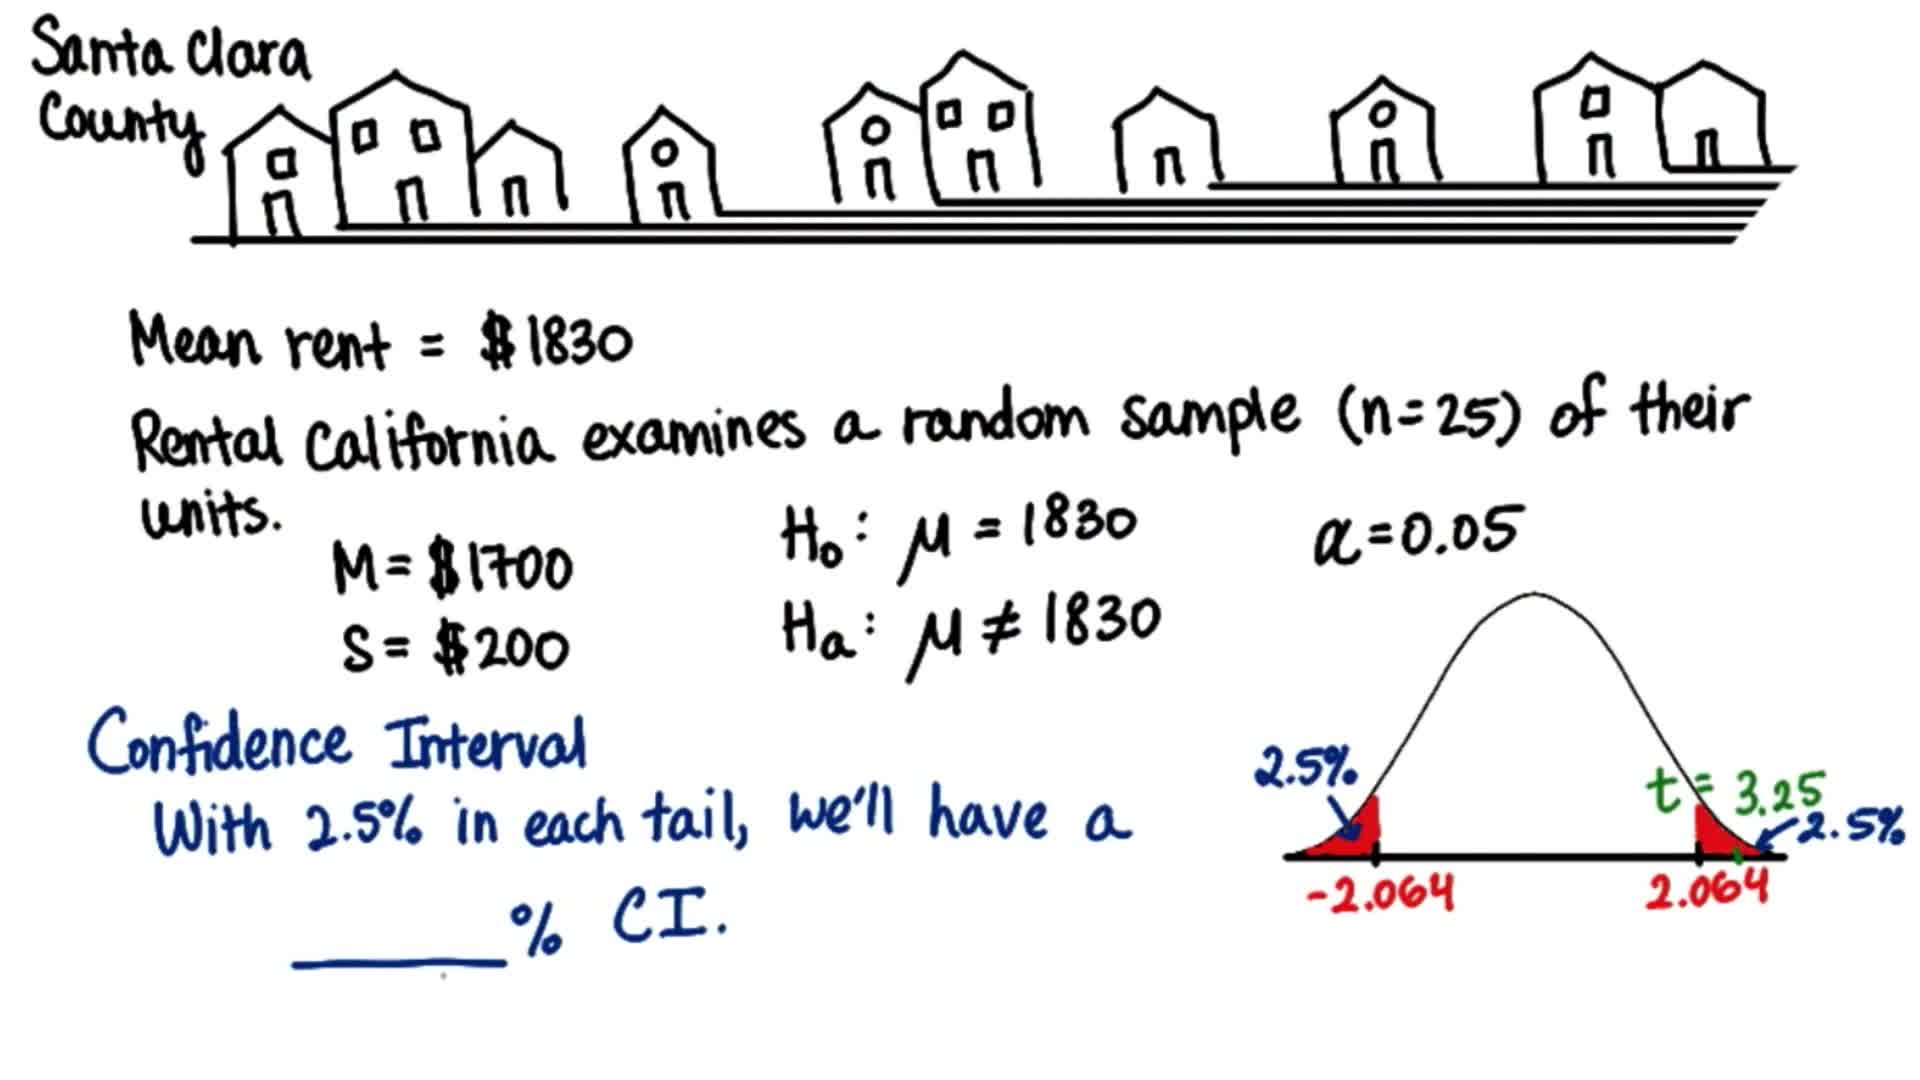 Santa Clara
County
Mean rent = $1830
Rental California examines a random sample (n=25) of their
units.
M = $1700
S = $200
H₀: μ = 1830
Hₐ: μ ≠ 1830
α = 0.05
Confidence Interval
With 2.5% in each tail, we'll have a
_____% CI.
2.5%
t = 3.25
2.5%
-2.064
2.064